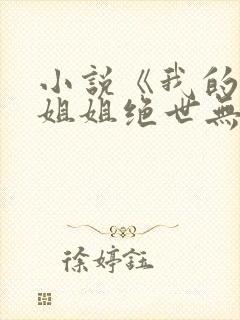 小説《我的
姐姐绝世無
徐婷鈺